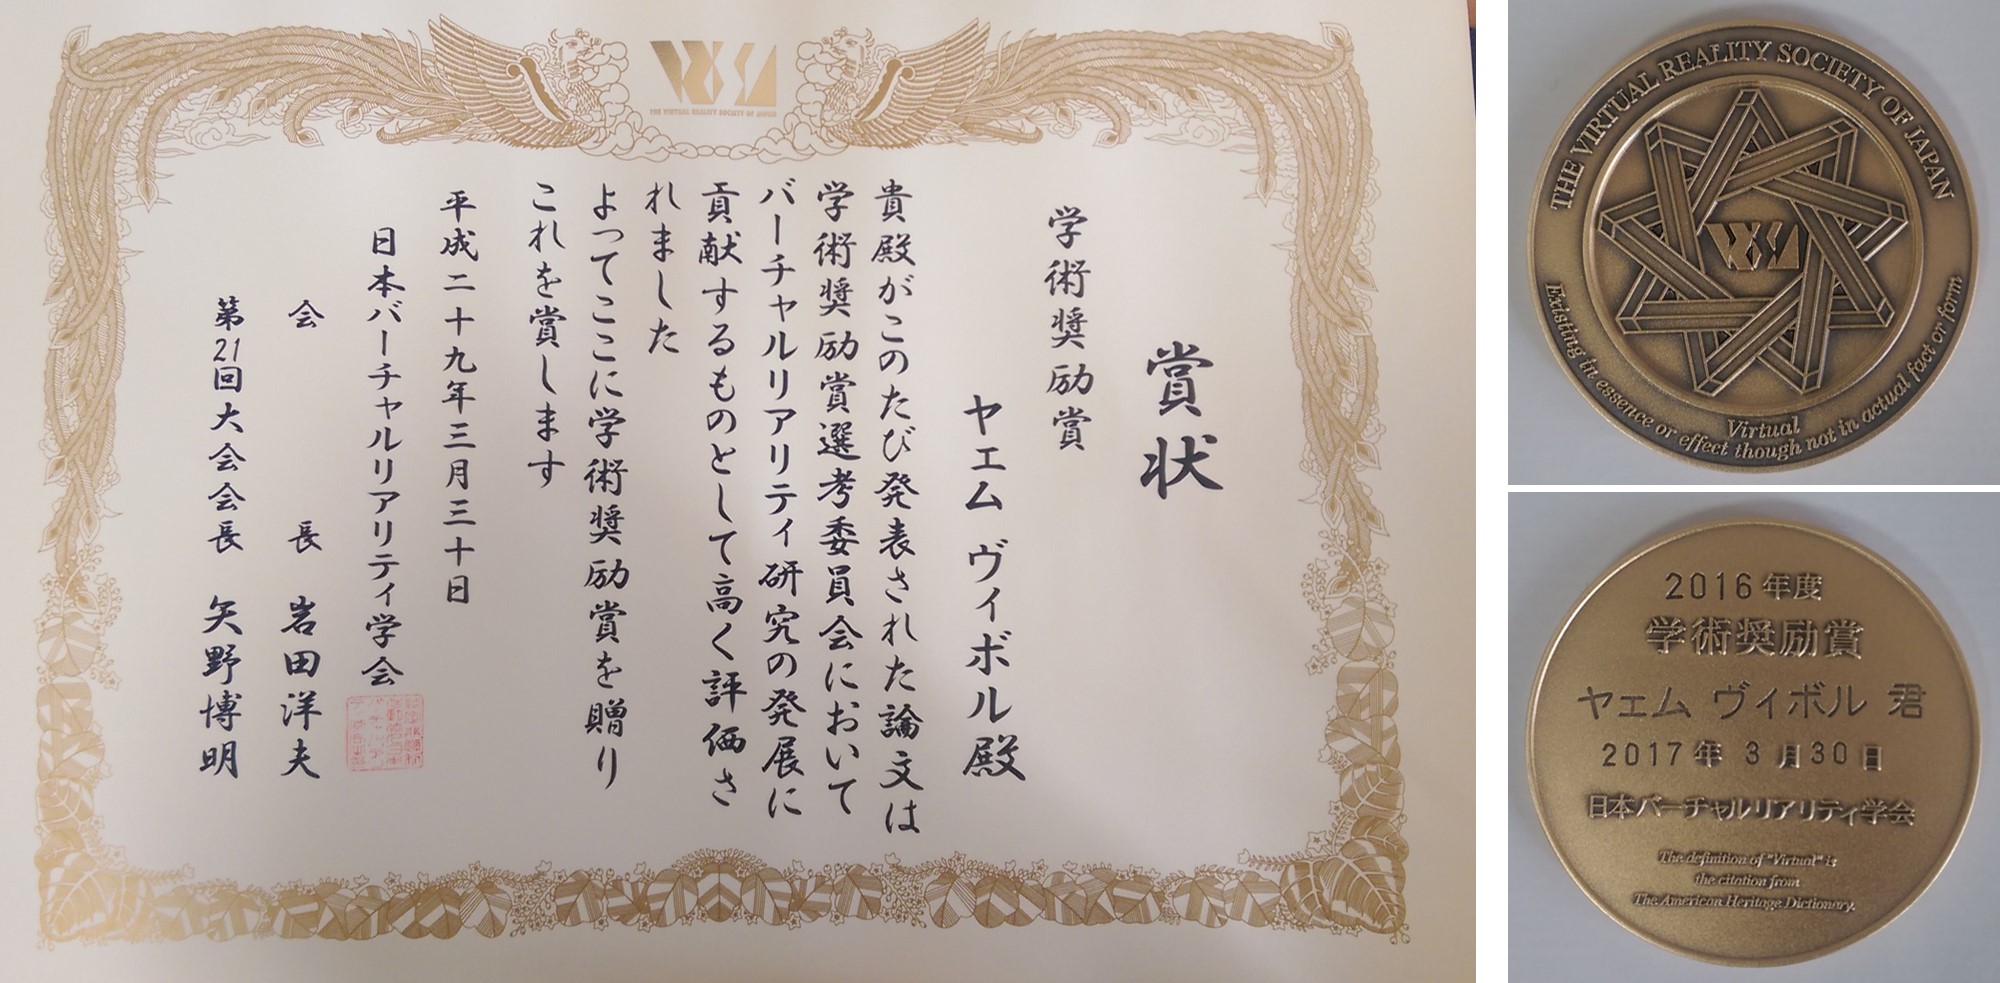 THE VIRTUAL REALITY SOCIETY OF JAPAN
賞状
学術奨励賞
ヤェム ヴィボル殿
貴殿がこのたび発表された論文は
学術奨励賞選考委員会において
バーチャルリアリティ研究の発展に
貢献するものとして高く評価さ
れました
よってここに学術奨励賞を贈り
これを賞します
平成二十九年三月三十日
日本バーチャルリアリティ学会
会長 岩田洋夫
第21回大会会長 矢野博明
THE VIRTUAL REALITY SOCIETY OF JAPAN
Virtual
Existing in essence or effect though not in actual fact or form
2016年度
学術奨励賞
ヤェム ヴィボル 君
2017年 3月30日
日本バーチャルリアリティ学会
The definition of "Virtual" is
the citation from
The American Heritage Dictionary.